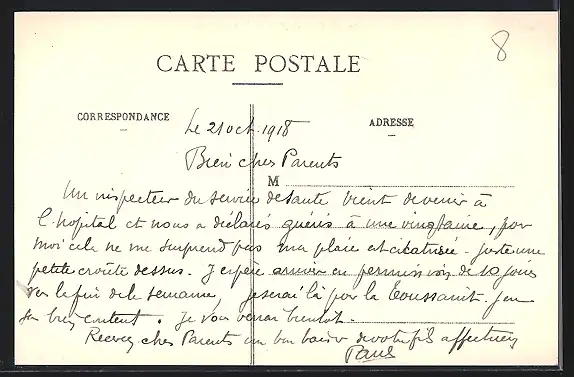 8
CARTE POSTALE
CORRESPONDANCE
ADRESSE
Le 21 oct. 1918
Bien chers Parents
M
Un inspecteur du service de santé vient de venir à
l'hopital et nous a déclarés guéris à une vingtaine, pour
moi cela ne me surprend pas ma plaie est cicatrisée. juste une
petite croûte dessus. J'espère arriver en permission de 10 jours
vers la fin de la semaine, je serai là pour la Toussaint. J'en
suis bien content. Je vous verrai bientôt.
Recevez chers Parents un bon baiser de votre fils affectueux
Paul